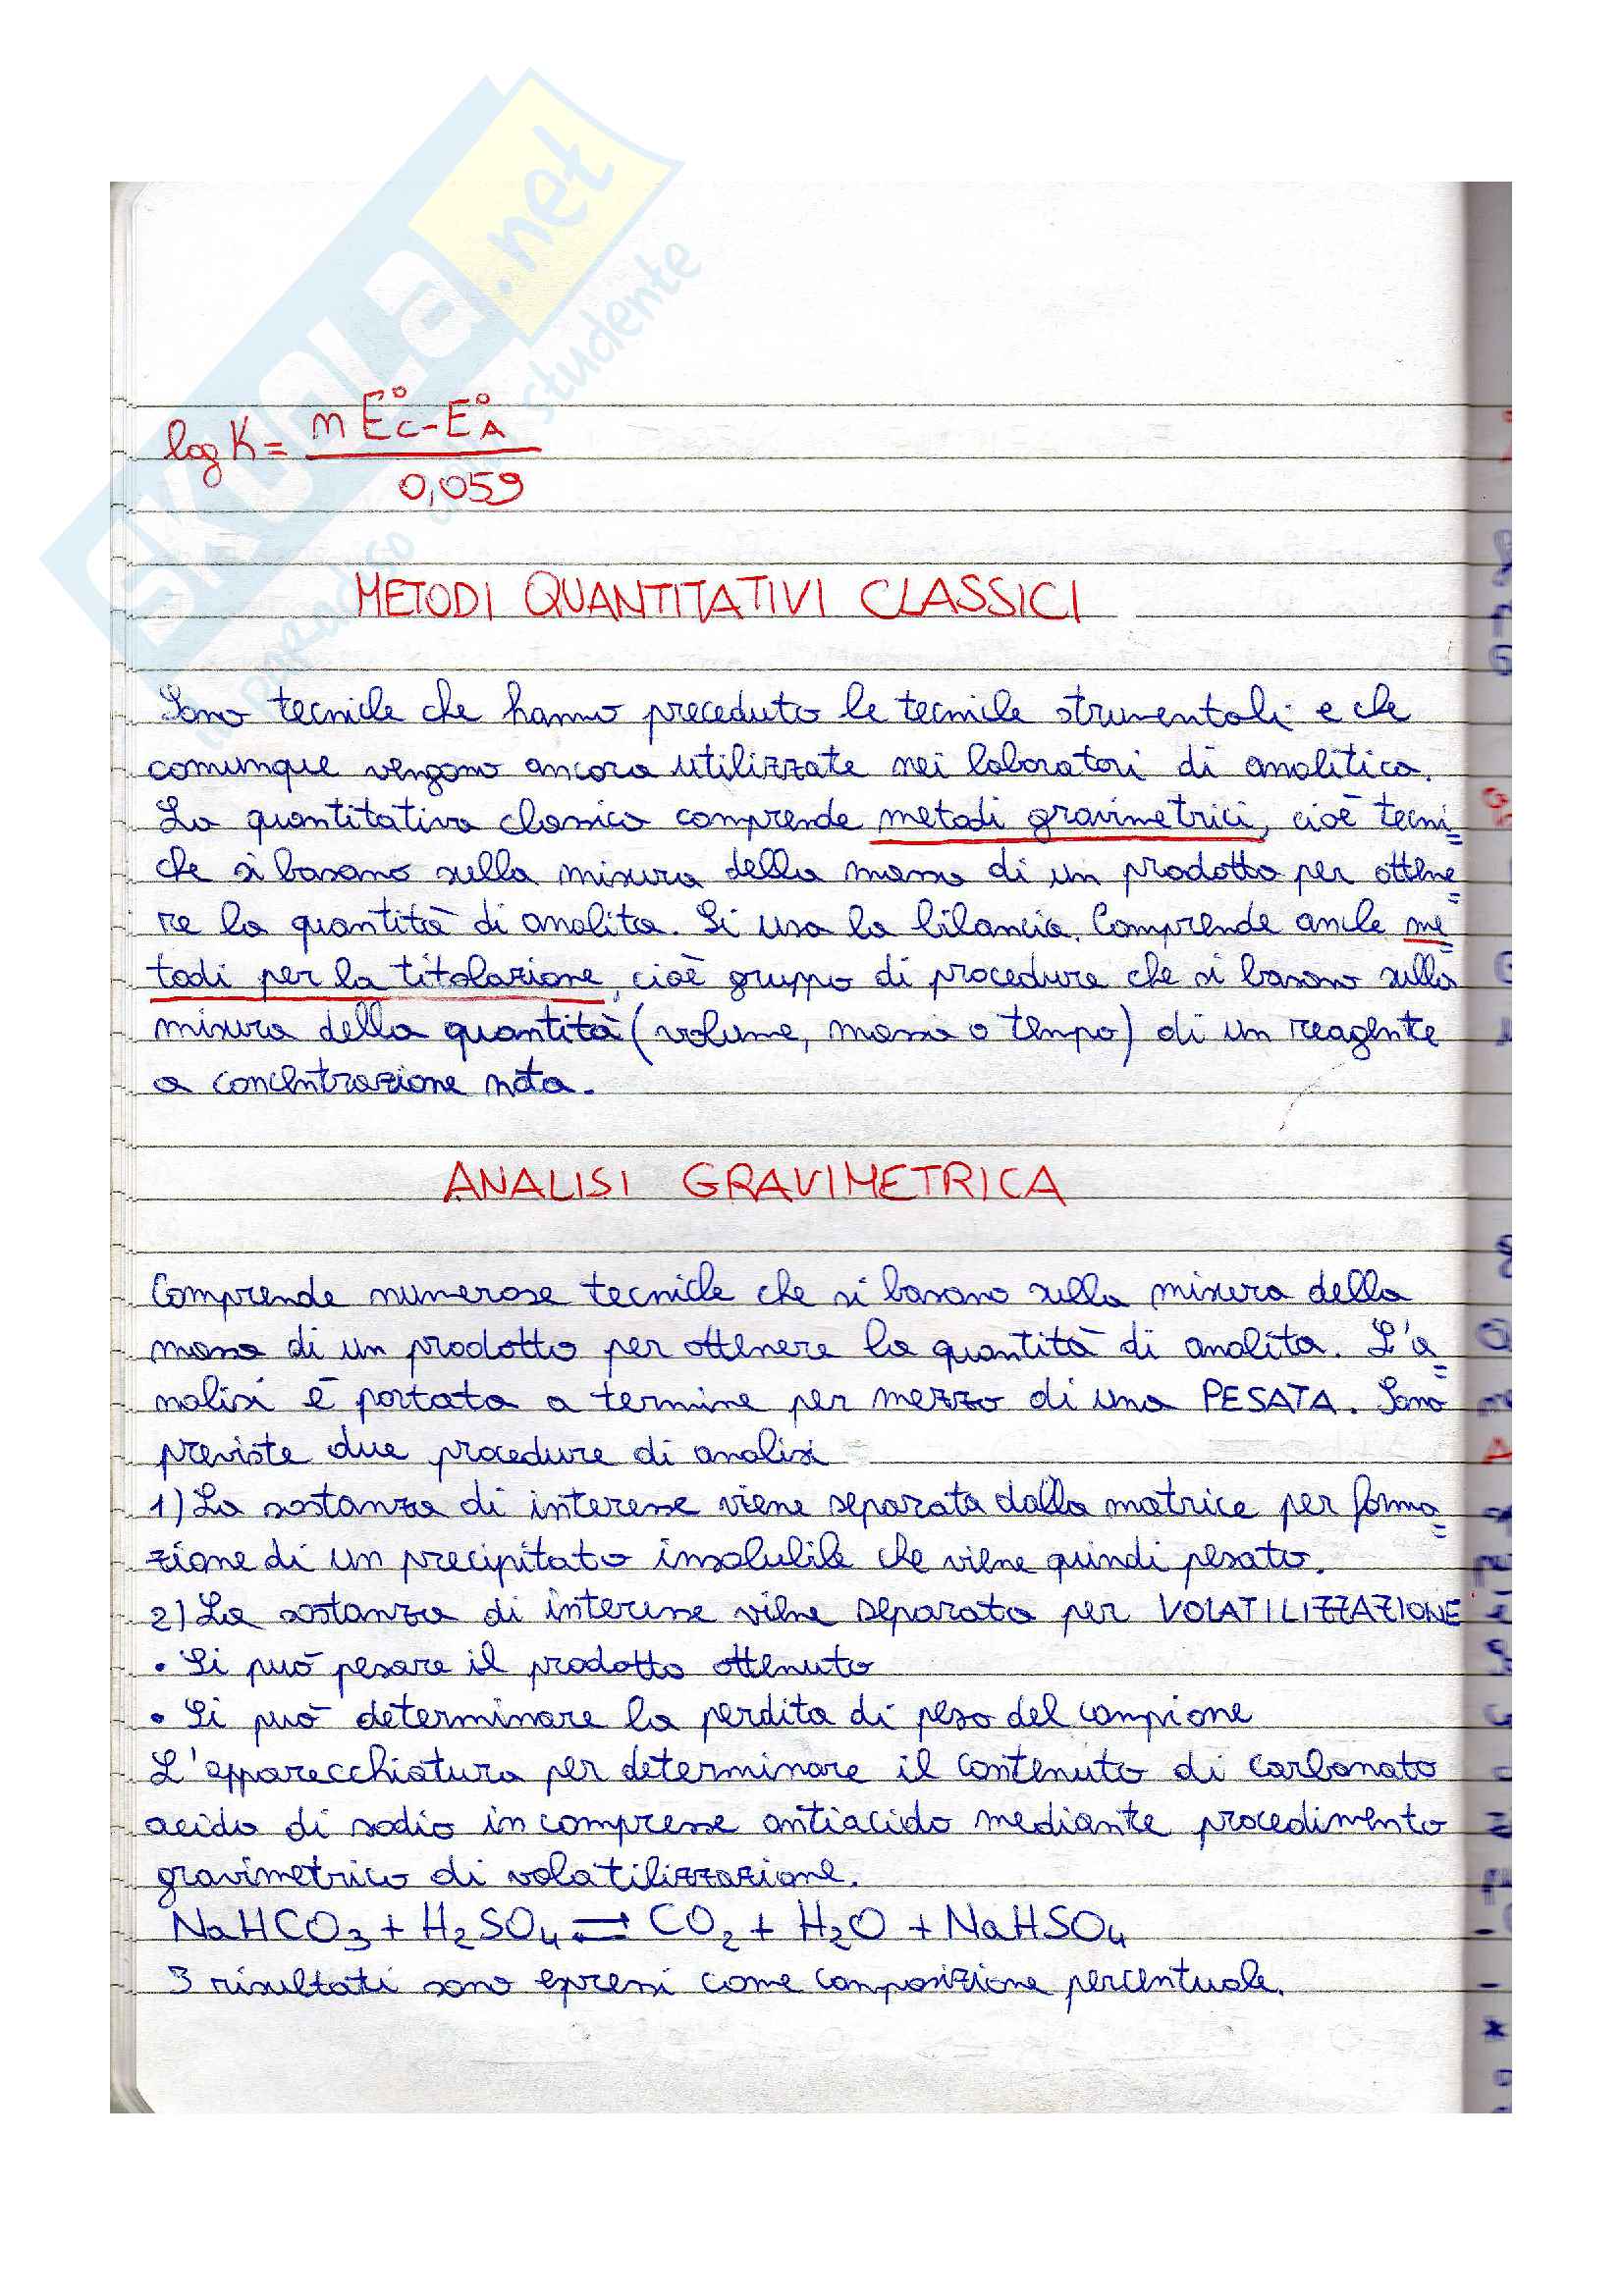 SKUOLA.net
un paradiso di studente
log K = n E°C - E°A
0,059
METODI QUANTITATIVI CLASSICI
Sono tecniche che hanno preceduto le tecniche strumentali e che
comunque vengono ancora utilizzate nei laboratori di analitica.
La quantitativa classica comprende metodi gravimetrici, cioè tecni=
che si basano sulla misura della massa di un prodotto per ottene=
re la quantità di analita. Si usa la bilancia. Comprende anche me=
todi per la titolazione, cioè gruppo di procedure che si basano sulla
misura della quantità (volume, massa o tempo) di un reagente
a concentrazione nota.
ANALISI GRAVIMETRICA
Comprende numerose tecniche che si basano sulla misura della
massa di un prodotto per ottenere la quantità di analita. L'a=
nalisi è portata a termine per mezzo di una PESATA. Sono
previste due procedure di analisi
1) La sostanza di interesse viene separata dalla matrice per forma=
zione di un precipitato insolubile che viene quindi pesato.
2) La sostanza di interesse viene separata per VOLATILIZZAZIONE
• Si può pesare il prodotto ottenuto
• Si può determinare la perdita di peso del campione
L'apparecchiatura per determinare il contenuto di carbonato
acido di sodio in compresse antiacido mediante procedimento
gravimetrico di volatilizzazione.
NaHCO3 + H2SO4 ⇌ CO2 + H2O + NaHSO4
I risultati sono espressi come composizione percentuale.